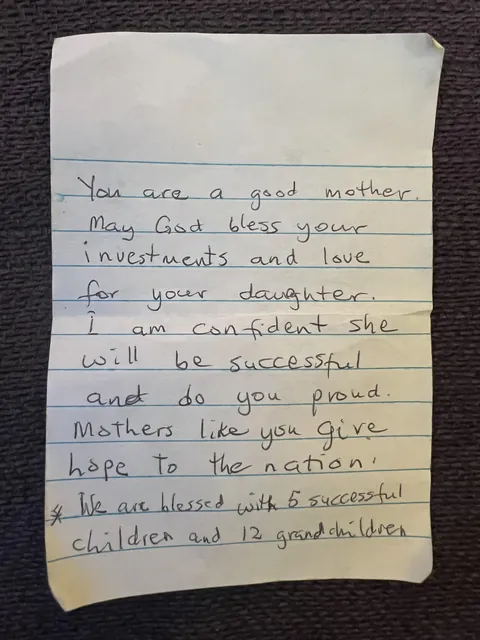 You are a good mother.
May God bless your
investments and love
for your daughter.
I am confident she
will be successful
and do you proud.
Mothers like you give
hope to the nation.
* We are blessed with 5 successful
children and 12 grandchildren